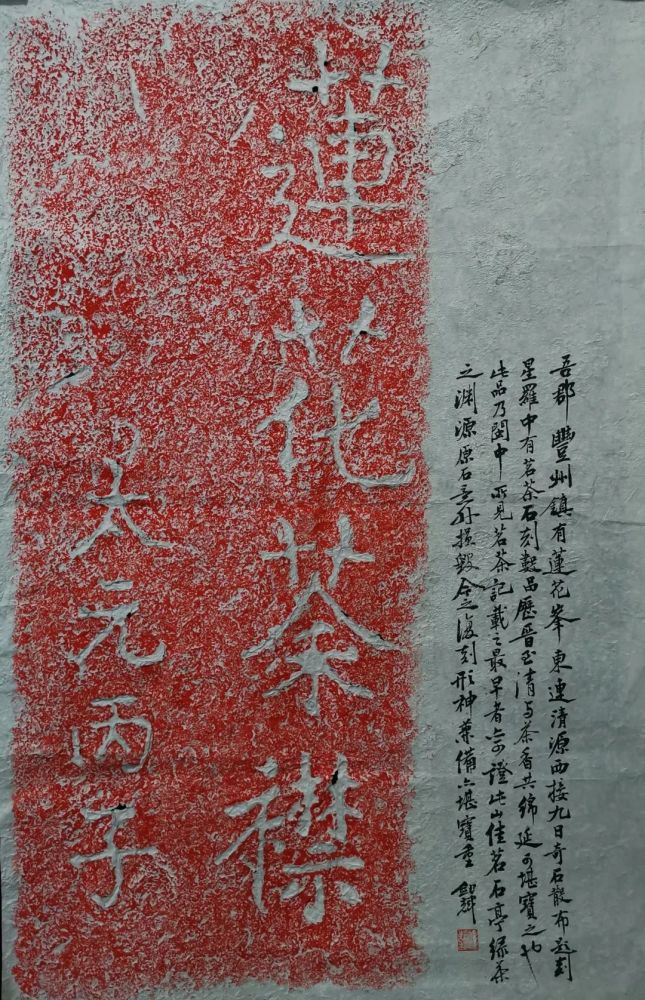 吾郡豐州鎮有蓮花峯東連清源西接九日奇石散布題刻
星羅中有茗茶石刻數品歷晉至清与茶香共綿延可堪寶之也
此品乃閩中所見茗茶記載之最早者亦證此山佳茗石亭綠茶
之淵源原石意外損毀今之復刻形神兼備亦堪寶重
蓮花茶襟
太元丙子